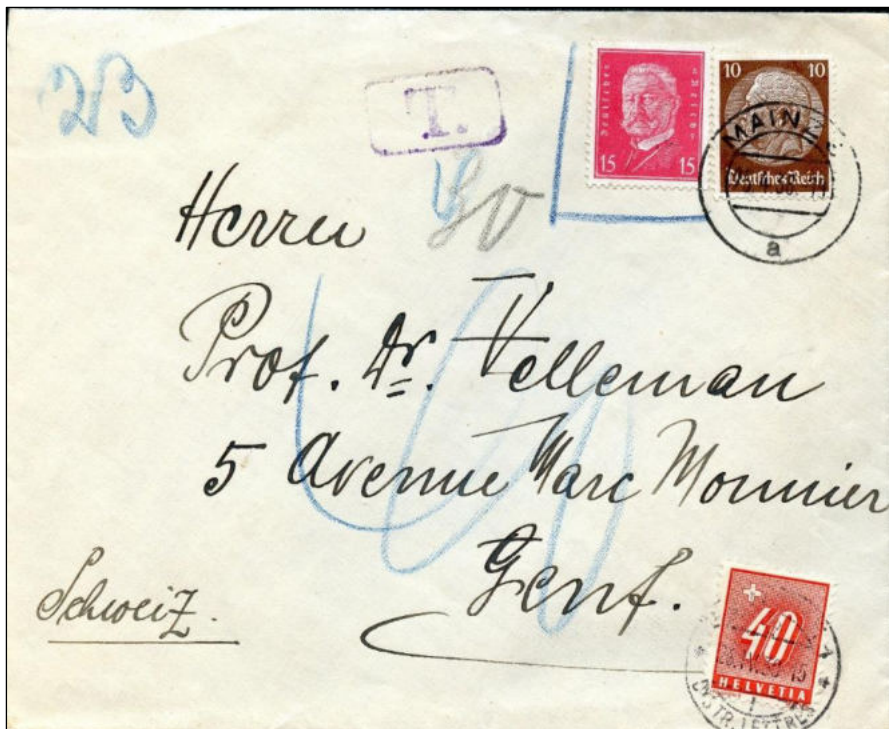 T.
Deutsches Reich
15 15
10 10
Deutsches Reich
MAINZ
a
30
Herrn
Prof. Dr. Velleman
5 Avenue Marc Monnier
Genf.
Schweiz.
40
HELVETIA
DISTR. LETTRES